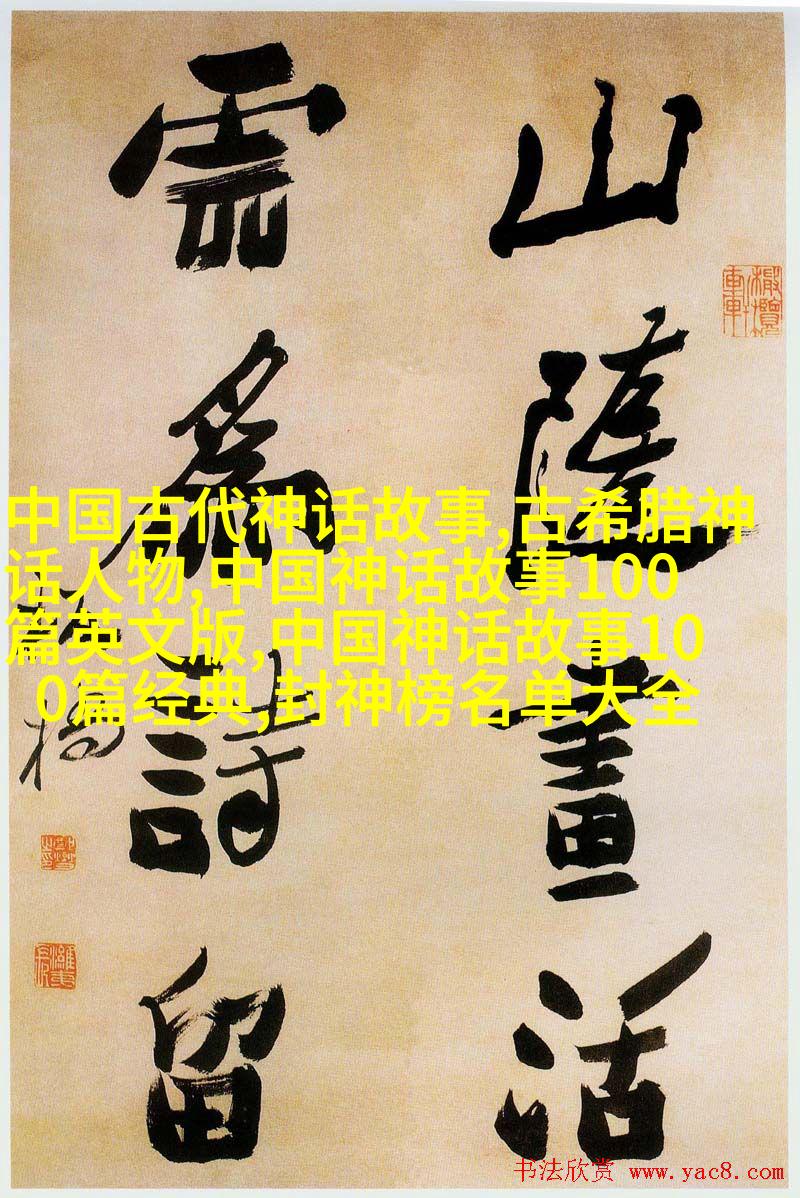 山隨畫活
雲為詩留
板橋
中国古代神话故事,古希腊神
话人物,中国神话故事100
篇英文版,中国神话故事10
0篇经典,封神榜名单大全
书法欣赏 www.yac8.com